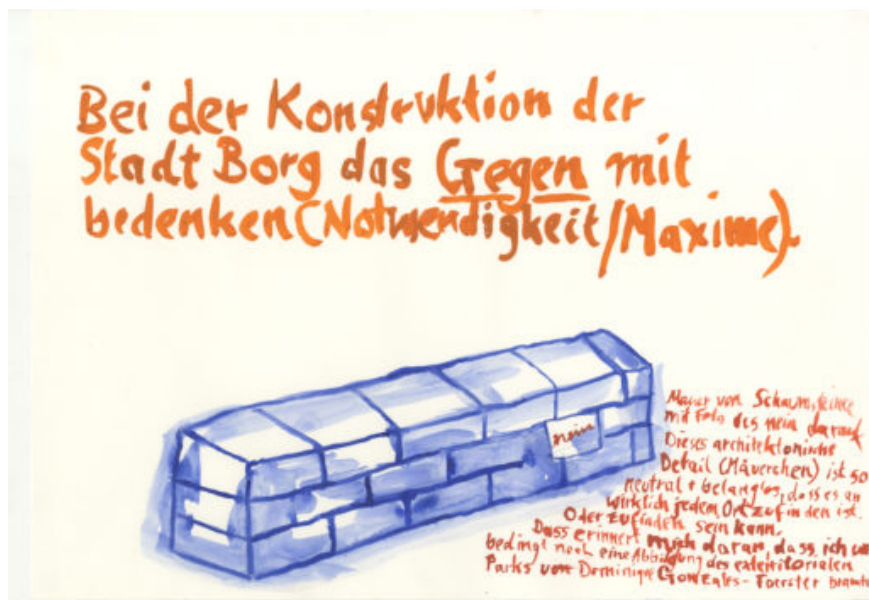 Bei der Konstruktion der
Stadt Borg das Gegen mit
bedenken (Notwendigkeit/Maxime).
nein
Mauer von Schaumsteine
mit Foto des nein darauf
Dieses architektonische
Detail (Mäuerchen) ist so
neutral + belanglos, dass es an
wirklich jedem Ort zu finden ist.
Oder zu finden sein kann.
Dass erinnert mich daran, dass ich un
bedingt noch eine Abbildung des exterritorialen
Parks von Dominique Gonzales-Foerster brauche